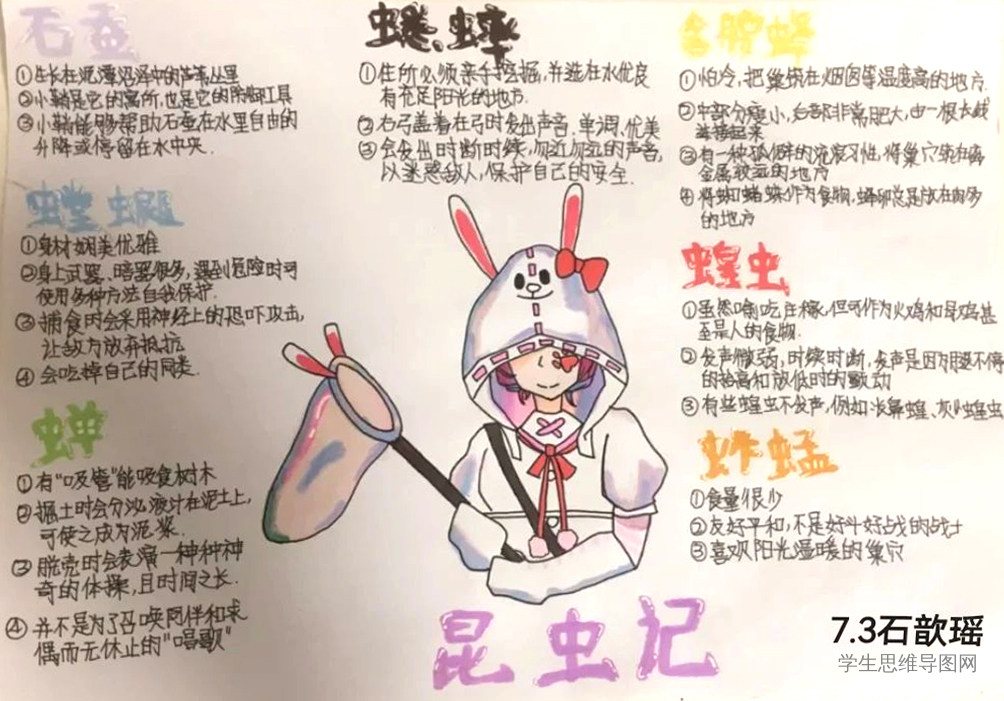 石蚕
①生长在泥潭沼泽中的芦苇丛里
②小鞘是它的寓所,也是它的防御工具
③小鞘能够帮助石蚕在水里自由的
升降或停留在水中央.
螳螂
①身材娴美优雅
②身上武器、暗器很多,遇到危险时可
使用多种方法自我保护.
③捕食时会采用神经上的恐吓攻击,
让敌方放弃抵抗
④会吃掉自己的同类.
蝉
①有“吸管”能吸食树木
②掘土时会分泌液汁在泥土上,
可使之成为泥浆.
③脱壳时会表演一种种神
奇的体操,且时间之长.
④并不是为了召唤同伴和求
偶而无休止的“唱歌”
蟋、蟀
①住所必须亲手挖掘,并选在水优良
有充足阳光的地方.
②右弓盖着在弓时发出声音.单调、优美
③会发出时断时续,忽近忽远的声音,
以迷惑敌人,保护自己的安全.
舍腰蜂
①怕冷,把巢筑在烟囱等温度高的地方.
②中部分瘦小,后部非常肥大,由一根长线
连接起来
③有一种孤僻的流浪习性,将巢穴筑在离
金属较远的地方
④将蜘蛛作为食物,蜂卵总是放在肉多
的地方
蝗虫
①虽然啃吃庄稼,但可作为火鸡和母鸡甚
至是人的食物.
②发声微弱,时续时断,发声是因为腿不停
的抬高和放低时的颤动
③有些蝗虫不发声,例如长鼻蝗、灰蝗虫
蚱蜢
①食量很少
②友好平和,不是好斗好战的战士
③喜欢阳光温暖的巢穴
昆虫记
7.3石歆瑶
学生思维导图网